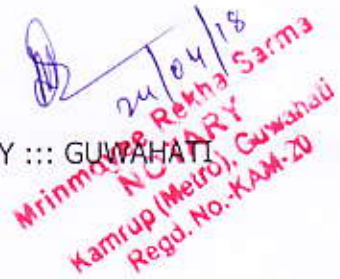 24/04/18
Y ::: GUWAHATI
Mrinmoyee Rekha Sarma
NOTARY
Kamrup (Metro), Guwahati
Regd. No.-KAM-20